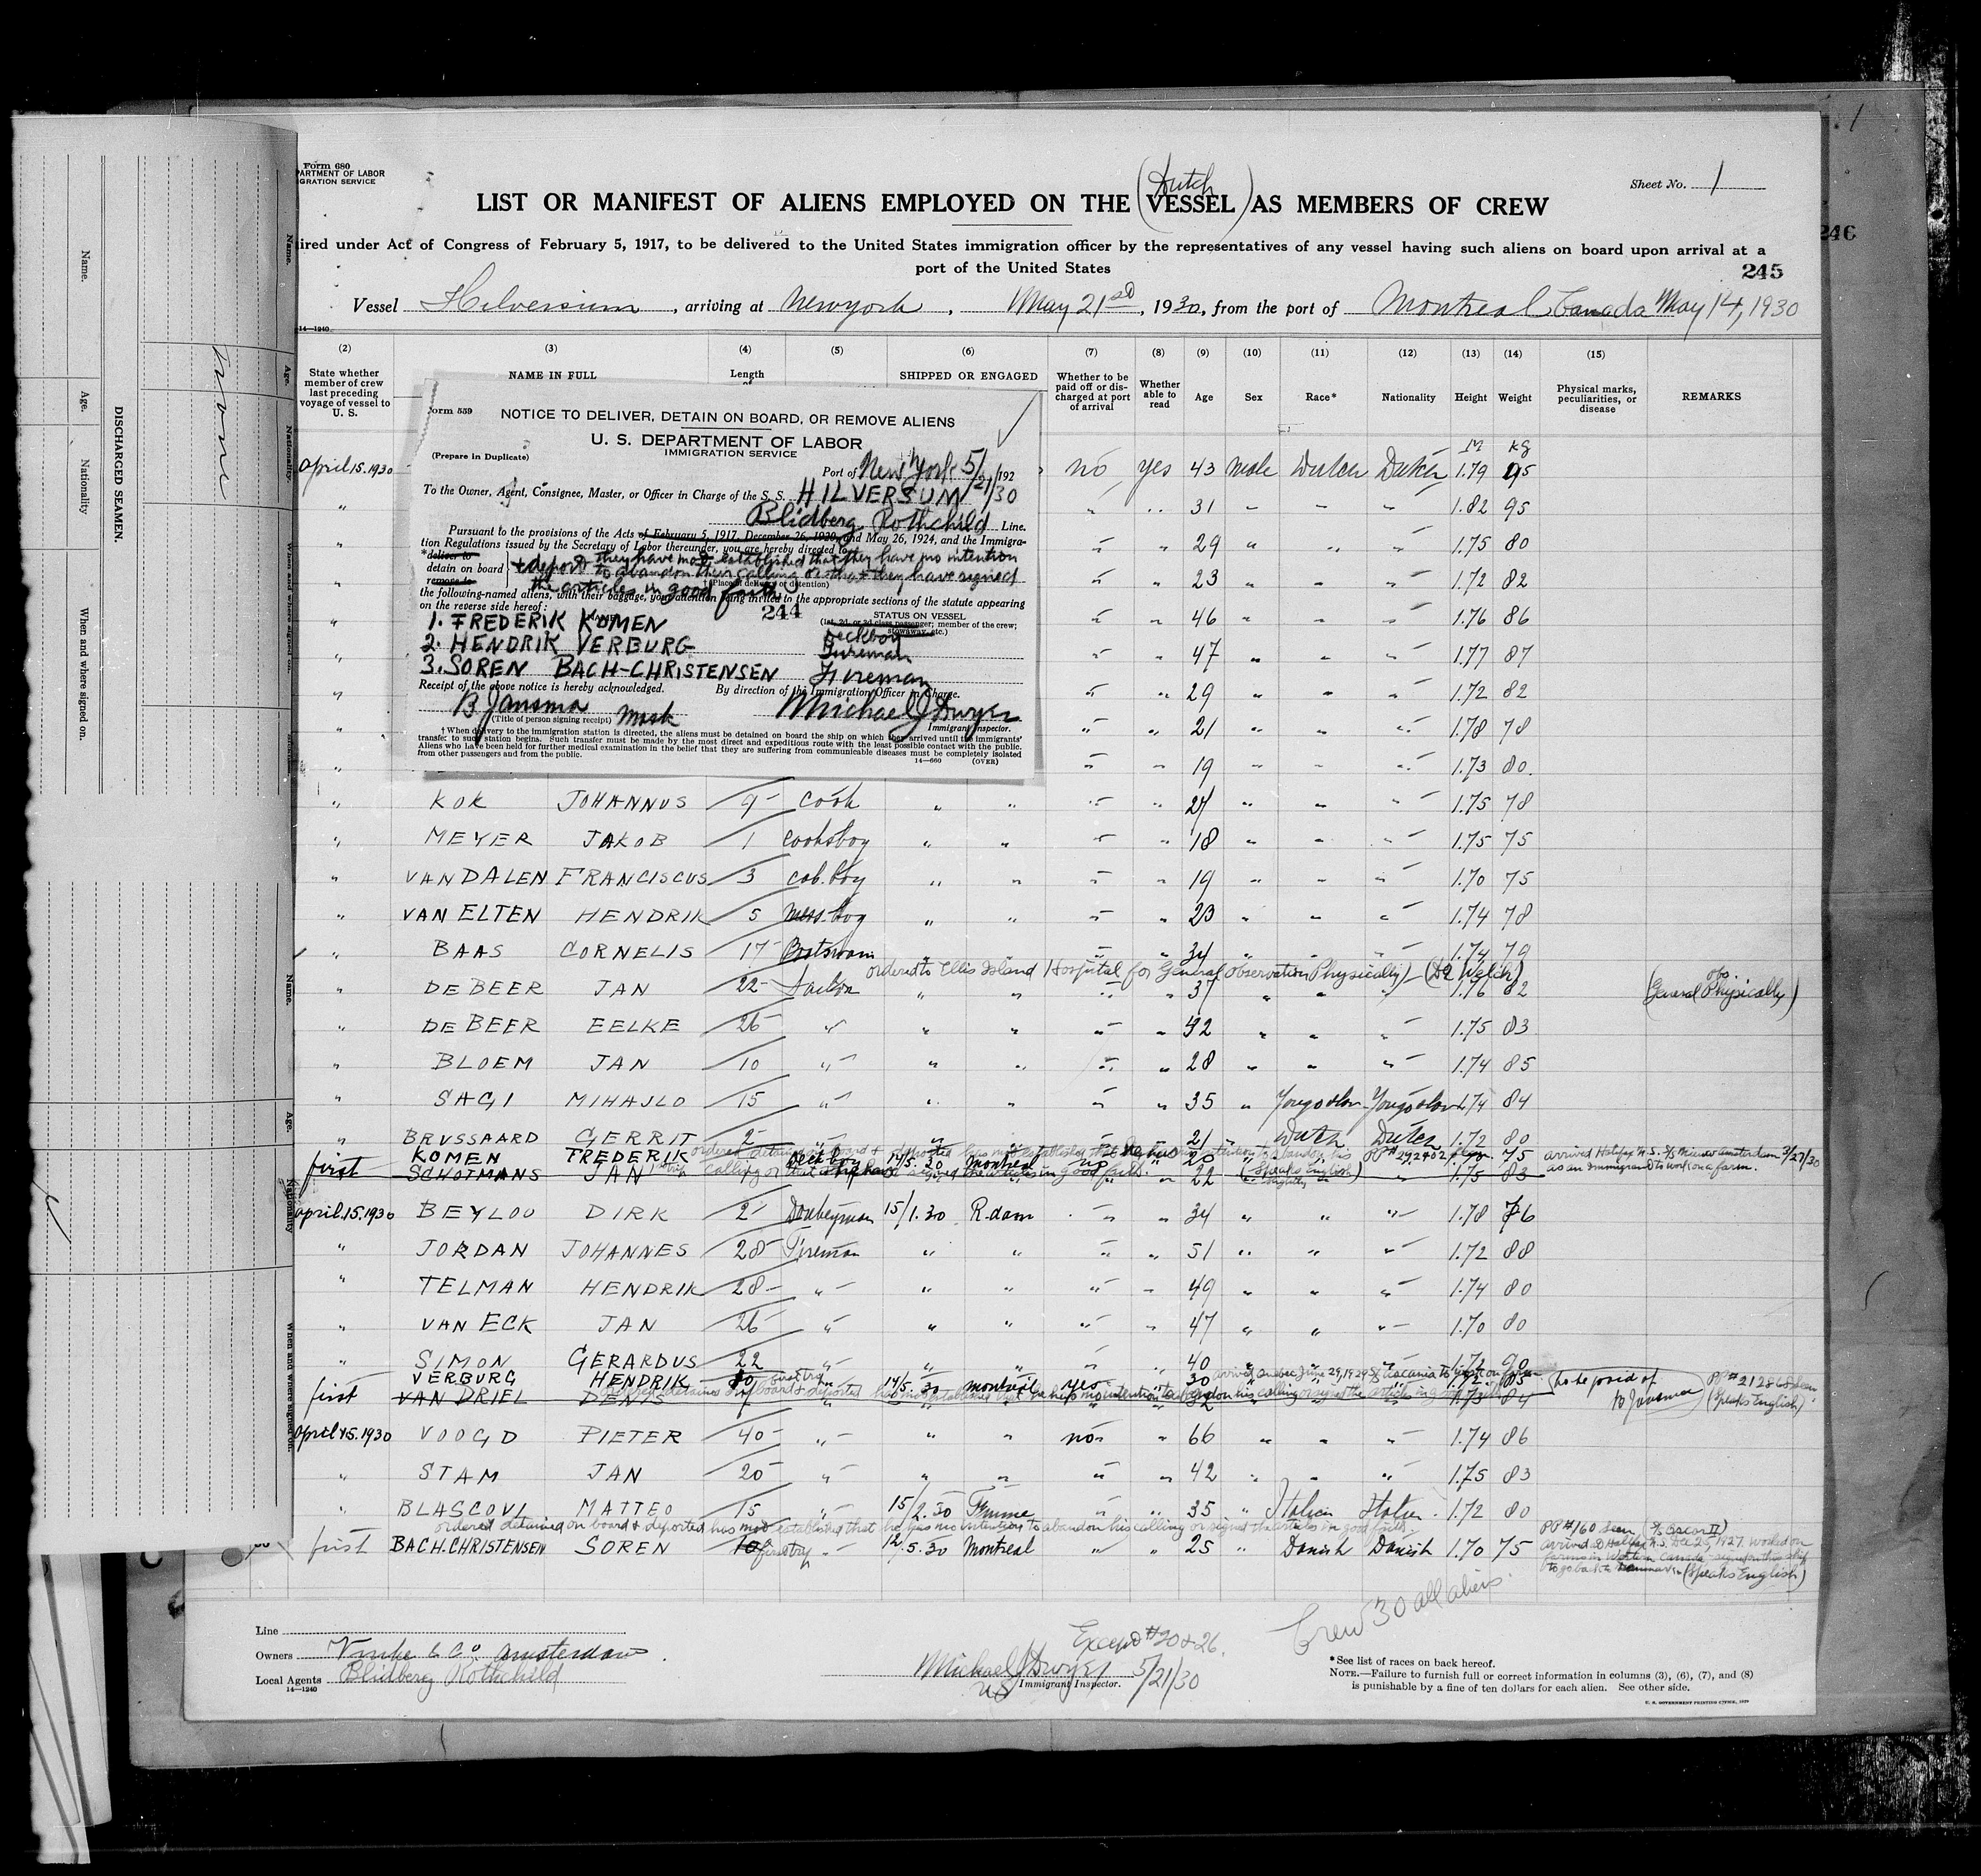 Form 680
PARTMENT OF LABOR
IGRATION SERVICE
Sheet No. 1
(Dutch)
LIST OR MANIFEST OF ALIENS EMPLOYED ON THE VESSEL AS MEMBERS OF CREW
ired under Act of Congress of February 5, 1917, to be delivered to the United States immigration officer by the representatives of any vessel having such aliens on board upon arrival at a
port of the United States
245
246
Vessel Hilversum, arriving at New york, May 21st, 1930, from the port of Montreal Canada May 14, 1930
14—1240
(2) (3) (4) (5) (6) (7) (8) (9) (10) (11) (12) (13) (14) (15)
State whether member of crew last preceding voyage of vessel to U. S.
NAME IN FULL
Length of
SHIPPED OR ENGAGED
Whether to be paid off or discharged at port of arrival
Whether able to read
Age Sex Race* Nationality Height Weight
Physical marks, peculiarities, or disease
REMARKS
M kg
Form 559
NOTICE TO DELIVER, DETAIN ON BOARD, OR REMOVE ALIENS
U. S. DEPARTMENT OF LABOR
IMMIGRATION SERVICE
(Prepare in Duplicate)
Port of New York 5/21/30 192
To the Owner, Agent, Consignee, Master, or Officer in Charge of the S. S. HILVERSUM
Blidberg Rothchild Line.
Pursuant to the provisions of the Acts of February 5, 1917, December 26, 1920, and May 26, 1924, and the Immigra-
tion Regulations issued by the Secretary of Labor thereunder, you are hereby directed to
*deliver to
detain on board
remove to
& deport they have not established that they have no intention
to abandon their calling or that they have signed
the articles in good faith
(Place of delivery or detention)
the following-named aliens, with their baggage, your attention being invited to the appropriate sections of the statute appearing
on the reverse side hereof:
244
NAME
STATUS ON VESSEL
(1st, 2d, or 3d class passenger; member of the crew; stowaway, etc.)
1. FREDERIK KOMEN Deckboy
2. HENDRIK VERBURG Fireman
3. SOREN BACH-CHRISTENSEN Fireman
Receipt of the above notice is hereby acknowledged.
By direction of the Immigration Officer in Charge.
B Jansma Mast
Michael J Dwyer
(Title of person signing receipt)
Immigrant Inspector.
†When delivery to the immigration station is directed, the aliens must be detained on board the ship on which they arrived until the immigrants'
transfer to such station begins. Such transfer must be made by the most direct and expeditious route with the least possible contact with the public.
Aliens who have been held for further medical examination in the belief that they are suffering from communicable diseases must be completely isolated
from other passengers and from the public.
14—660 (OVER)
april 15.1930 no yes 43 male Dutch Dutch 1.79 95
" " " 31 " " " 1.82 95
" " " 29 " " " 1.75 80
" " " 23 " " " 1.72 82
" " " 46 " " " 1.76 86
" " " 47 " " " 1.77 87
" " " 29 " " " 1.72 82
" " " 21 " " " 1.78 78
" " " 19 " " " 1.73 80
" KOK JOHANNUS 9 cook " " " " 27 " " " 1.75 78
" MEYER JAKOB 1 cooksboy " " " " 18 " " " 1.75 75
" VAN DALEN FRANCISCUS 3 cab. boy " " " " 19 " " " 1.70 75
" VAN ELTEN HENDRIK 5 mess-boy " " " " 23 " " " 1.74 78
" BAAS CORNELIS 17 Boatswain " " " " 34 " " " 1.74 79
ordered to Ellis Island Hospital for General Observation Physically) (Dr Welch)
" DE BEER JAN 22 Sailor " " " " 37 " " " 1.76 82 obs. (General Physically)
" DE BEER EELKE 26 " " " " " 32 " " " 1.75 83
" BLOEM JAN 10 " " " " " 28 " " " 1.74 85
" SAGI MIHAJLO 15 " " " " " 35 " Yougoslav Yougoslav 1.74 84
" BRUSSAARD GERRIT 2 " " " " " 21 " Dutch Dutch 1.72 80
ordered detained on board & deported has not established that he has no intention to abandon his
KOMEN FREDERIK Deck boy 14/5.30 Montreal no " 20 PP# 292402 75 arrived Halifax N.S. S/S Nieuw Amsterdam 3/27/30
as an Immigrant to work on a farm.
calling or that signed the articles in good faith (Speaks English)
first SCHOTMANS JAN 22 " 1.75 83
april.15.1930 BEYLOO DIRK 2 Donkeyman 15/1.30 R.dam " " 34 " " " 1.78 76
" JORDAN JOHANNES 28 Fireman " " " " 51 " " " 1.72 88
" TELMAN HENDRIK 28 " " " " " 49 " " " 1.74 80
" VAN ECK JAN 26 " " " " " 47 " " " 1.70 80
" SIMON GERARDUS 22 " " " " " 40 " " " 1.72 90
VERBURG HENDRIK first trip " 14/5.30 Montreal yes " 30 85
arrived Quebec June 29, 1929 S/S Ascania to work on
ordered detained on board & deported has not established that he has no intention to abandon his calling or signed the articles in
(to be paid off B Jansma) PP# 212868 seen (Speaks English)
first VAN DRIEL DENIS 32 1.75 84
April 15.1930 VOOGD PIETER 40 " " " no " 66 " " " 1.74 86
" STAM JAN 20 " " " " " 42 " " " 1.75 83
" BLASCOVI MATTEO 15 " 15/2.30 Fiume " " 35 " Italian Italian 1.72 80
ordered detained on board & deported has not established that he has no intention to abandon his calling or signed the articles in good faith.
first BACH.CHRISTENSEN SOREN first trip " 12/5.30 Montreal " " 25 " Danish Danish 1.70 75
PP#160 seen (S/S Oscar II)
arrived at Halifax N.S. Dec 25, 1927. worked on
farms in Western Canada, signed on this ship
to go back to Denmark (Speaks English)
Crew 30 all aliens.
Line
Owners Vinke & Co. Amsterdam
Local Agents Blidberg Rothchild
14—1240
Except #20 & 26.
Michael J Dwyer 5/21/30
US Immigrant Inspector.
*See list of races on back hereof.
NOTE.—Failure to furnish full or correct information in columns (3), (6), (7), and (8)
is punishable by a fine of ten dollars for each alien. See other side.
U. S. GOVERNMENT PRINTING OFFICE, 1929
DISCHARGED SEAMEN
Name.
Age.
Nationality
When and where signed on.
None